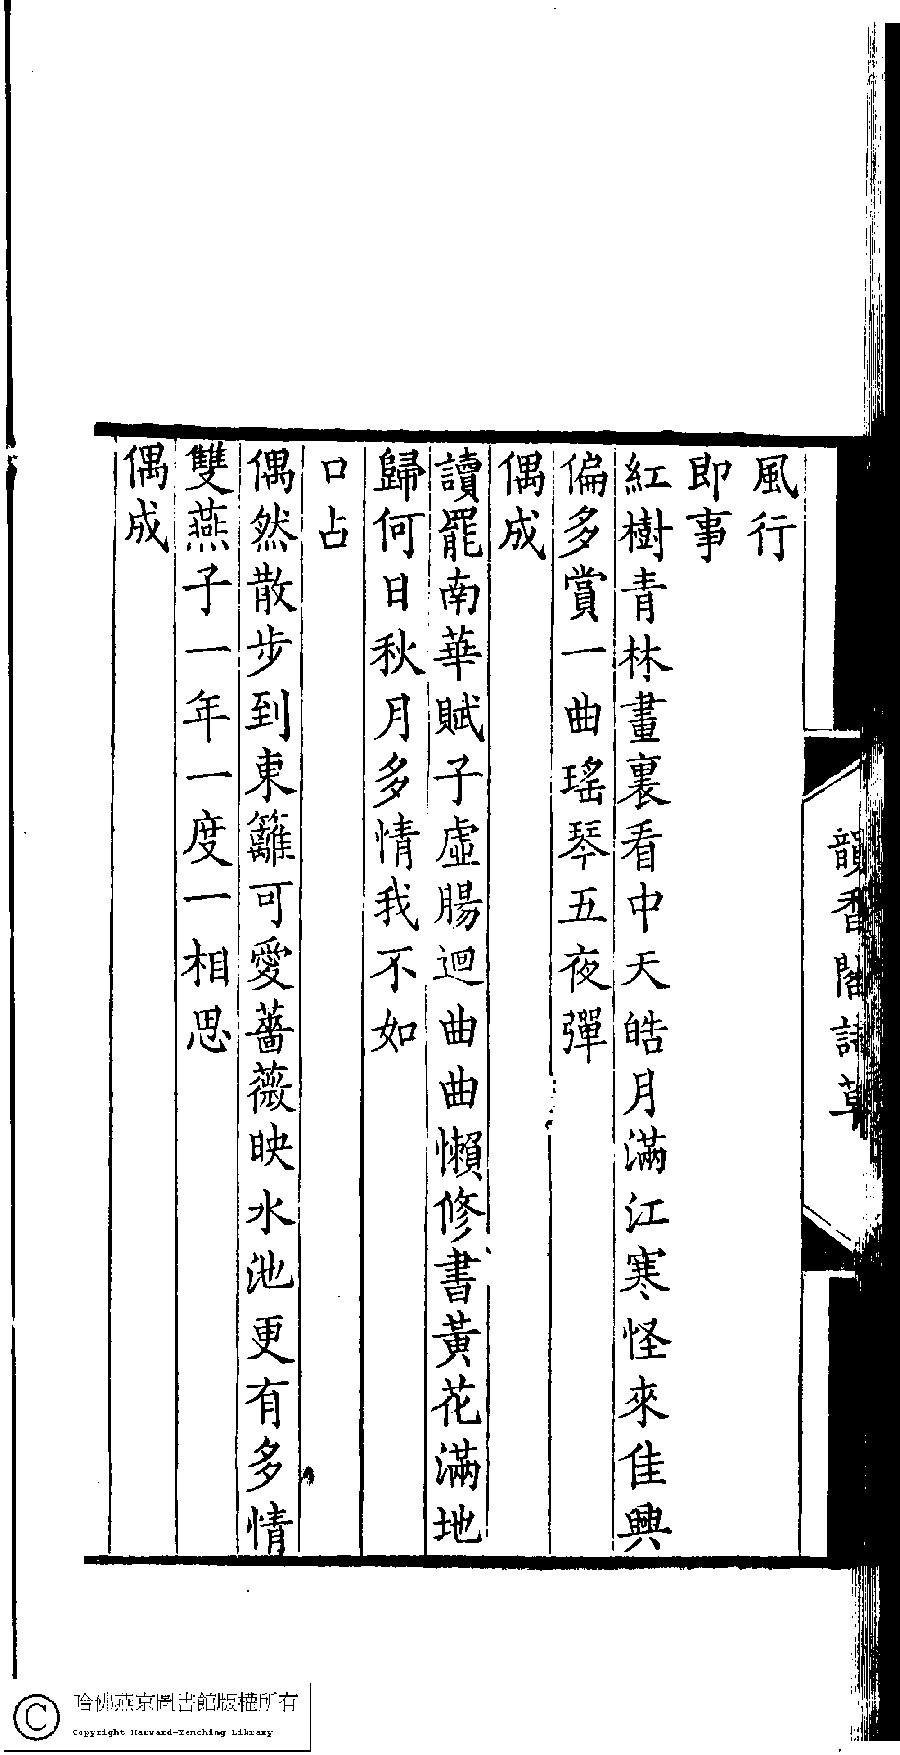 風行
即事
紅樹青林畫裏看中天皓月滿江寒怪來佳興
偏多賞一曲瑤琴五夜彈
偶成
讀罷南華賦子虛腸迴曲曲懶修書黃花滿地
歸何日秋月多情我不如
口占
偶然散步到東籬可愛薔薇映水池更有多情
雙燕子一年一度一相思
偶成
韻香閣詩草
哈佛燕京圖書館版權所有
Copyright Harvard-Yenching Library